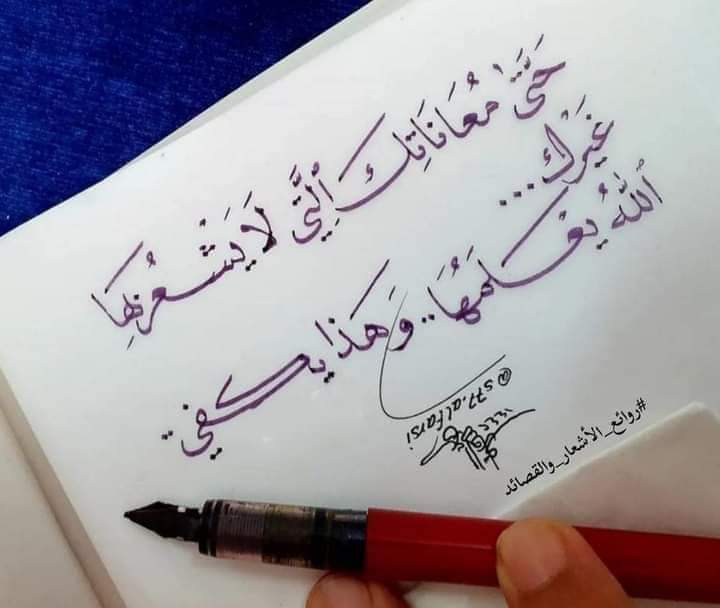 حَتَّى مُعَانَاتِكَ ٱلَّتِي لَا يَشْعُرُ بِهَا
غَيْرُكَ...
ٱللَّهُ يَعْلَمُهَا.. وَهَذَا يَكْفِي..
@s77.alfarsi
١٤٤٤
#روائع_الأشعار_والقصائد